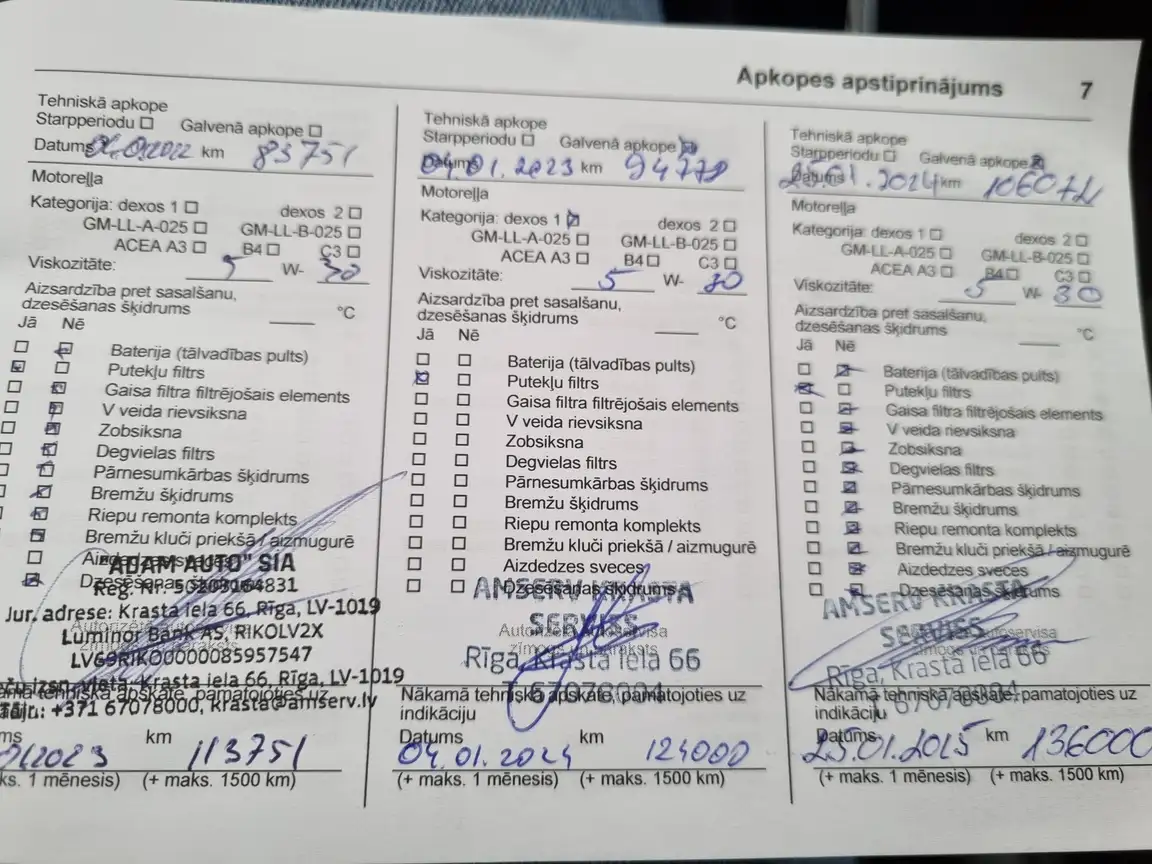 Apkopes apstiprinājums 7
Tehniskā apkope
Starpperiodu Galvenā apkope
Datums 2022 km 83751
Motoreļļa
Kategorija: dexos 1 dexos 2
GM-LL-A-025 GM-LL-B-025
ACEA A3 B4 C3
Viskozitāte: 5 W- 30
Aizsardzība pret sasalšanu,
dzesēšanas šķidrums °C
Jā Nē
Baterija (tālvadības pults)
Putekļu filtrs
Gaisa filtra filtrējošais elements
V veida rievsiksna
Zobsiksna
Degvielas filtrs
Pārnesumkārbas šķidrums
Bremžu šķidrums
Riepu remonta komplekts
Bremžu kluči priekšā / aizmugurē
ADAM AUTO" SIA
Dzesēšanas šķidrums
Reģ. Nr. 50203164831
Jur. adrese: Krasta iela 66, Rīga, LV-1019
Luminor Bank AS, RIKOLV2X
LV69RIKO0000085957547
izsn. vieta. Krasta iela 66, Rīga, LV-1019
tehniskā apskate, pamatojoties uz
+371 67078000, krasta@amserv.lv
km
2023 113751
1 mēnesis) (+ maks. 1500 km)
Tehniskā apkope
Starpperiodu Galvenā apkope
Datums 04.01.2023 km 94778
Motoreļļa
Kategorija: dexos 1 dexos 2
GM-LL-A-025 GM-LL-B-025
ACEA A3 B4 C3
Viskozitāte: 5 W- 30
Aizsardzība pret sasalšanu,
dzesēšanas šķidrums °C
Jā Nē
Baterija (tālvadības pults)
Putekļu filtrs
Gaisa filtra filtrējošais elements
V veida rievsiksna
Zobsiksna
Degvielas filtrs
Pārnesumkārbas šķidrums
Bremžu šķidrums
Riepu remonta komplekts
Bremžu kluči priekšā / aizmugurē
Aizdedzes sveces
Dzesēšanas šķidrums
AMSERV KRASTA
SERVISS
Autorizētā autoservisa
zīmogs un paraksts
Rīga, Krasta iela 66
T. 67078004
Nākamā tehniskā apskate, pamatojoties uz
indikāciju
Datums km
04.01.2024 124000
(+ maks. 1 mēnesis) (+ maks. 1500 km)
Tehniskā apkope
Starpperiodu Galvenā apkope
Datums 25.01.2024 km 106072
Motoreļļa
Kategorija: dexos 1 dexos 2
GM-LL-A-025 GM-LL-B-025
ACEA A3 B4 C3
Viskozitāte: 5 W- 30
Aizsardzība pret sasalšanu,
dzesēšanas šķidrums °C
Jā Nē
Baterija (tālvadības pults)
Putekļu filtrs
Gaisa filtra filtrējošais elements
V veida rievsiksna
Zobsiksna
Degvielas filtrs
Pārnesumkārbas šķidrums
Bremžu šķidrums
Riepu remonta komplekts
Bremžu kluči priekšā / aizmugurē
Aizdedzes sveces
Dzesēšanas šķidrums
AMSERV KRASTA
SERVISS
autoservisa
zīmogs un paraksts
Rīga, Krasta iela 66
67078004
Nākamā tehniskā apskate, pamatojoties uz
indikāciju
Datums km
25.01.2015 136000
(+ maks. 1 mēnesis) (+ maks. 1500 km)